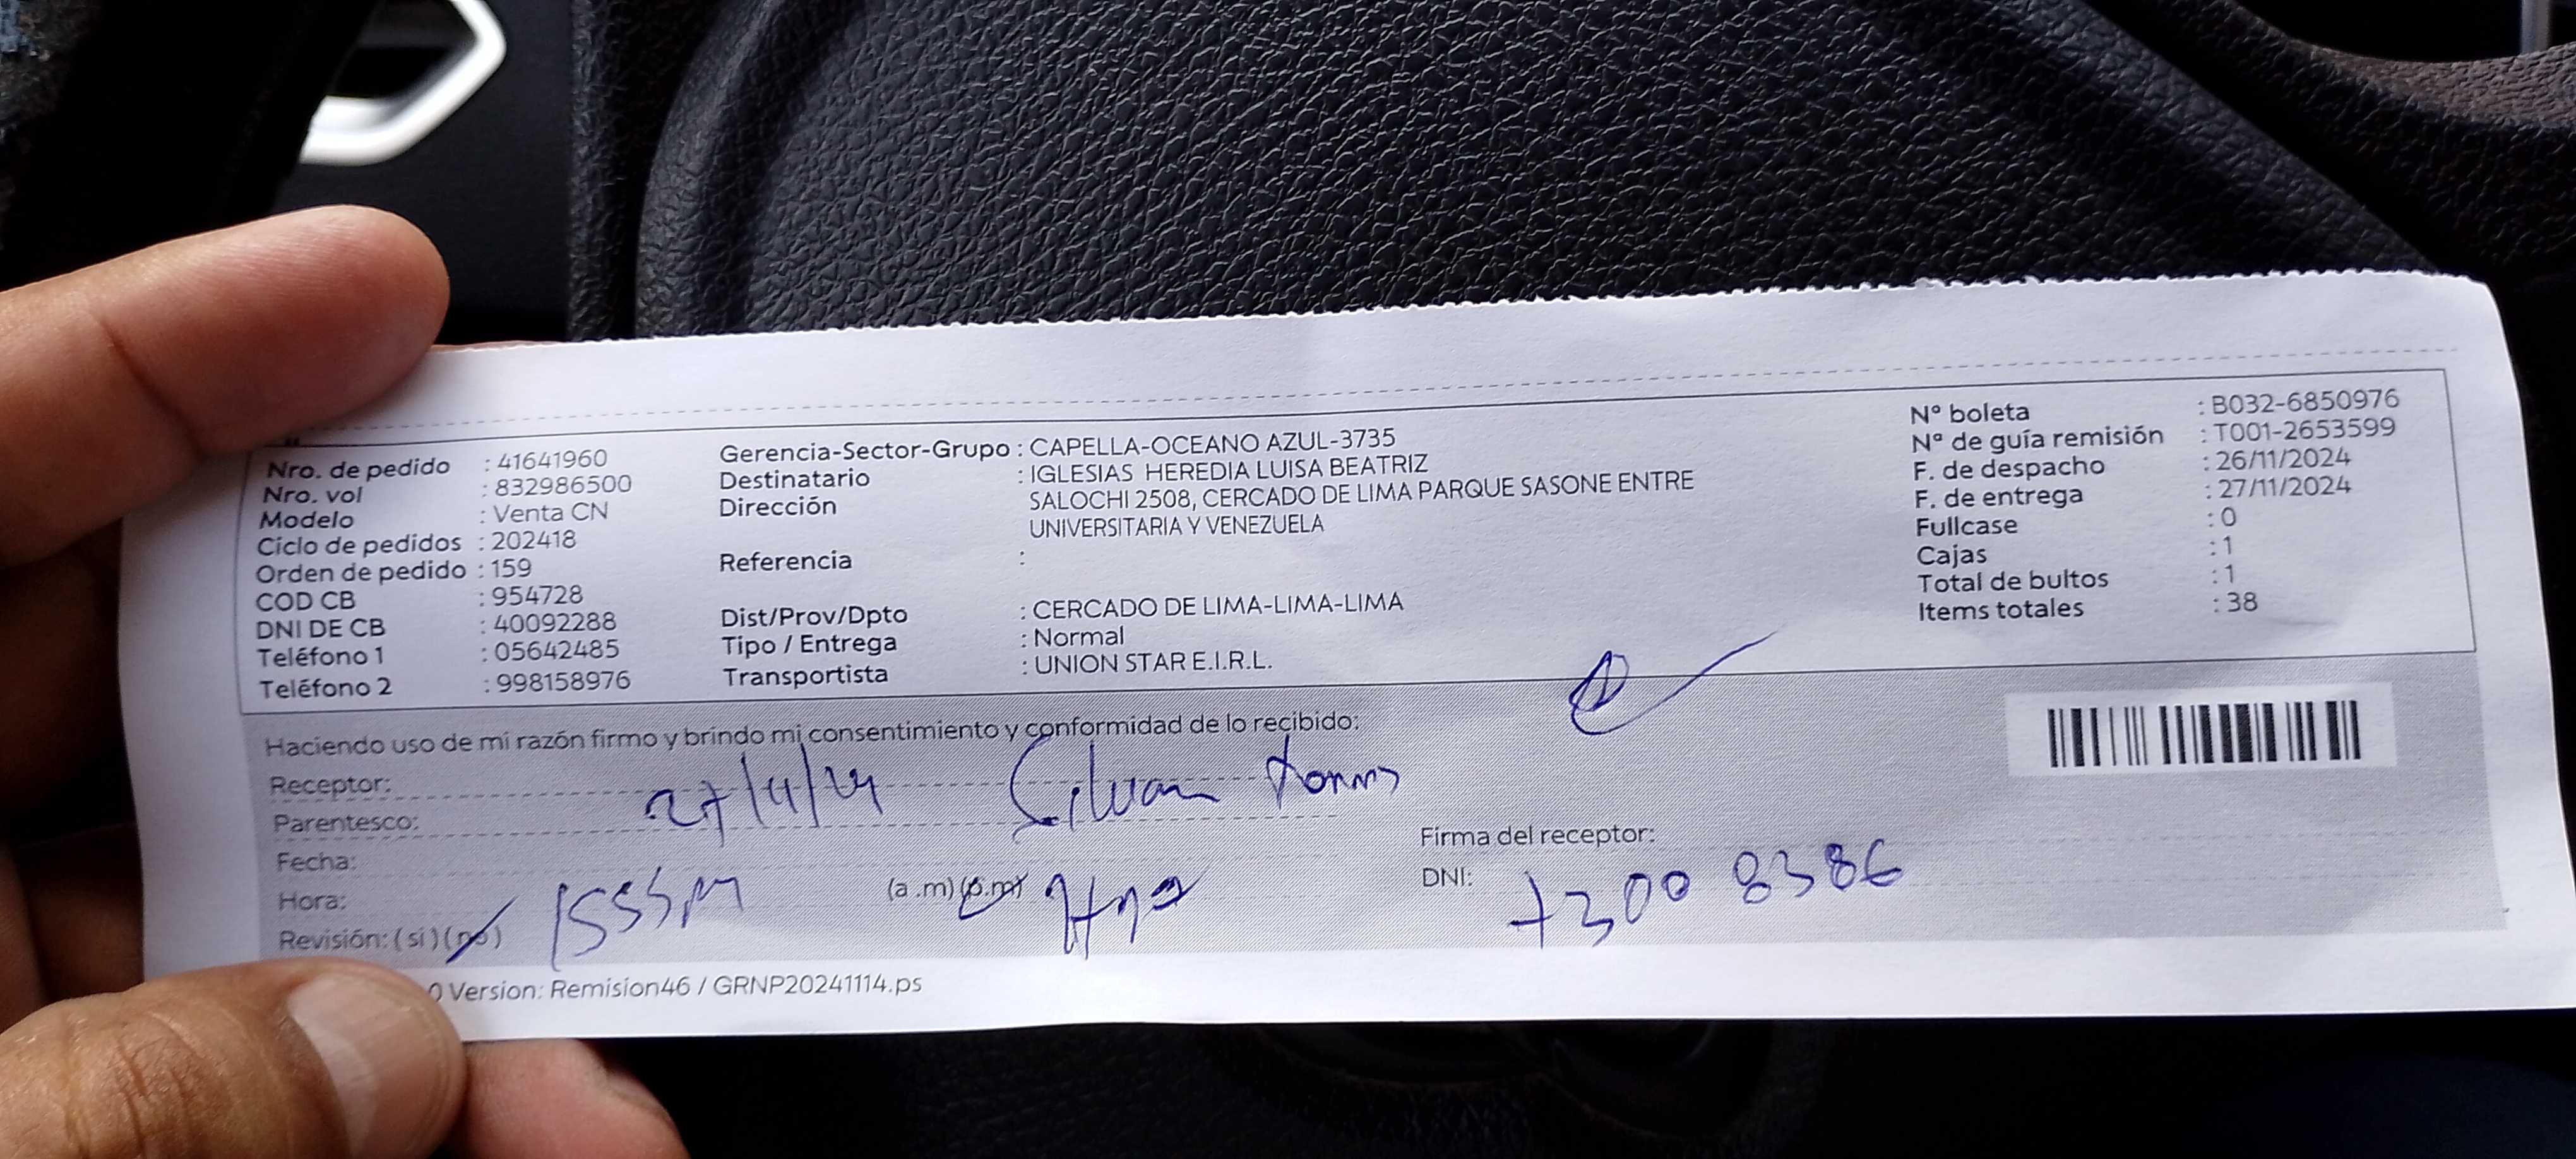 Nro. de pedido : 41641960
Nro. vol : 832986500
Modelo : Venta CN
Ciclo de pedidos : 202418
Orden de pedido : 159
COD CB : 954728
DNI DE CB : 40092288
Teléfono 1 : 05642485
Teléfono 2 : 998158976
Gerencia-Sector-Grupo : CAPELLA-OCEANO AZUL-3735
Destinatario : IGLESIAS HEREDIA LUISA BEATRIZ
Dirección SALOCHI 2508, CERCADO DE LIMA PARQUE SASONE ENTRE
UNIVERSITARIA Y VENEZUELA
Referencia :
Dist/Prov/Dpto : CERCADO DE LIMA-LIMA-LIMA
Tipo / Entrega : Normal
Transportista : UNION STAR E.I.R.L.
N° boleta : B032-6850976
N° de guía remisión : T001-2653599
F. de despacho : 26/11/2024
F. de entrega : 27/11/2024
Fullcase : 0
Cajas : 1
Total de bultos : 1
Items totales : 38
Haciendo uso de mi razón firmo y brindo mi consentimiento y conformidad de lo recibido:
Receptor:
27/11/24
Parentesco:
Fecha:
Hora: (a.m) (p.m)
Revisión: (si) (no)
Firma del receptor:
DNI: 73008386
0 Version: Remision46 / GRNP20241114.ps